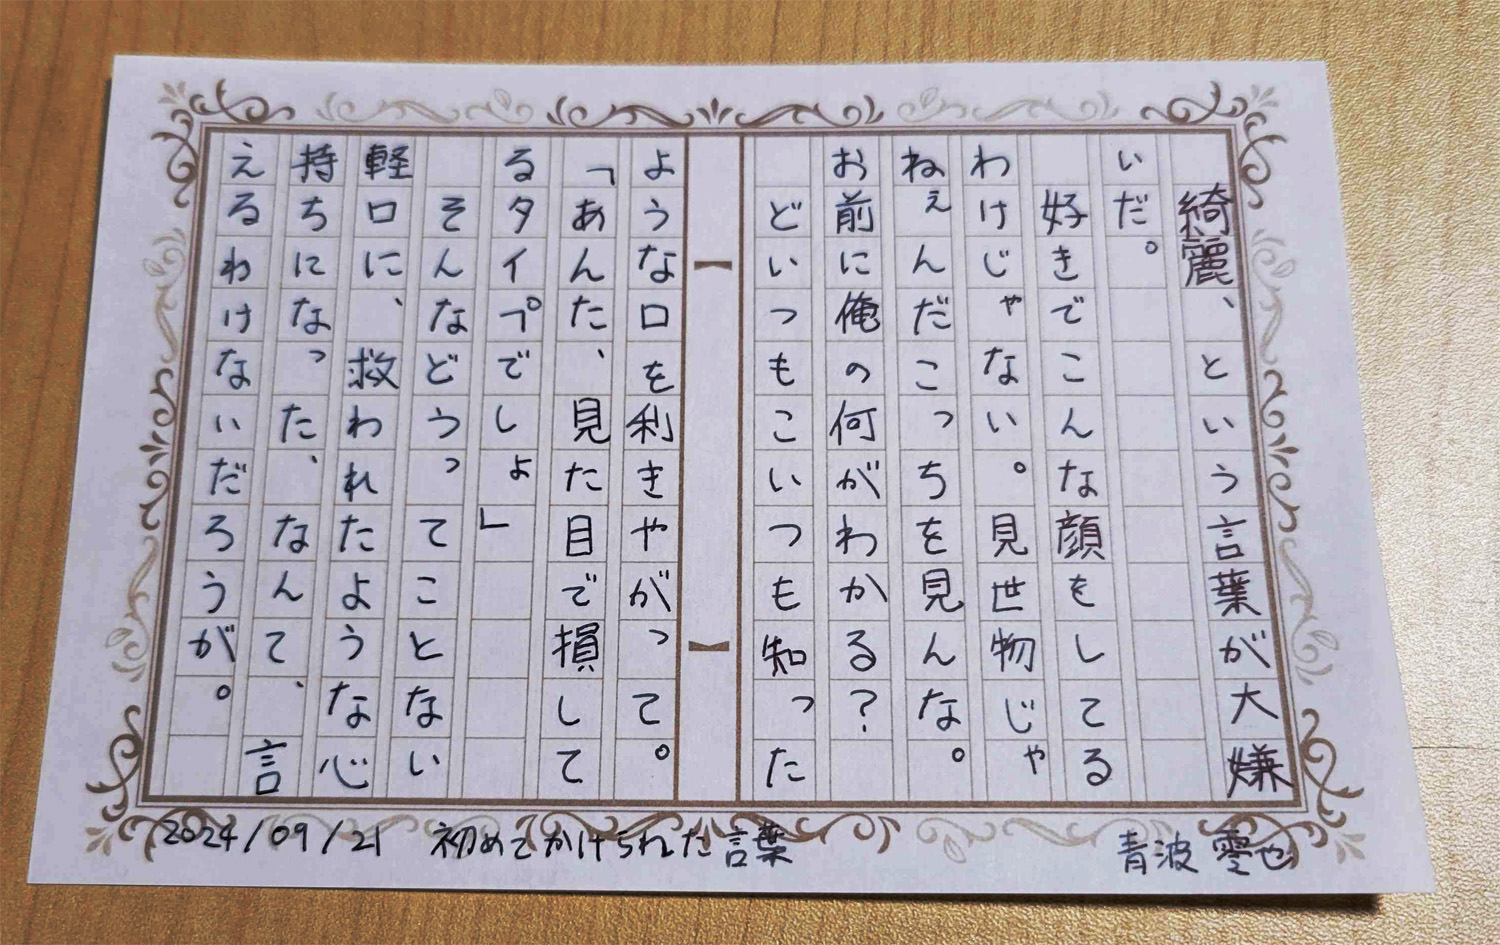 綺麗、という言葉が大嫌
いだ。
好きでこんな顔をしてる
わけじゃない。見世物じゃ
ねぇんだこっちを見んな。
お前に俺の何がわかる？
どいつもこいつも知った
ような口を利きやがって。
「あんた、見た目で損して
るタイプでしょ」
そんなどうってことない
軽口に、救われたような心
持ちになった、なんて、言
えるわけないだろうが。
2024/09/21 初めてかけられた言葉
青波 零也